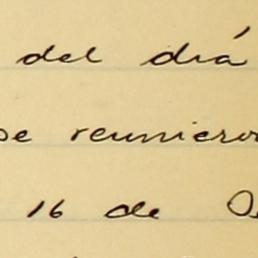 del día
se reuniero
16 de